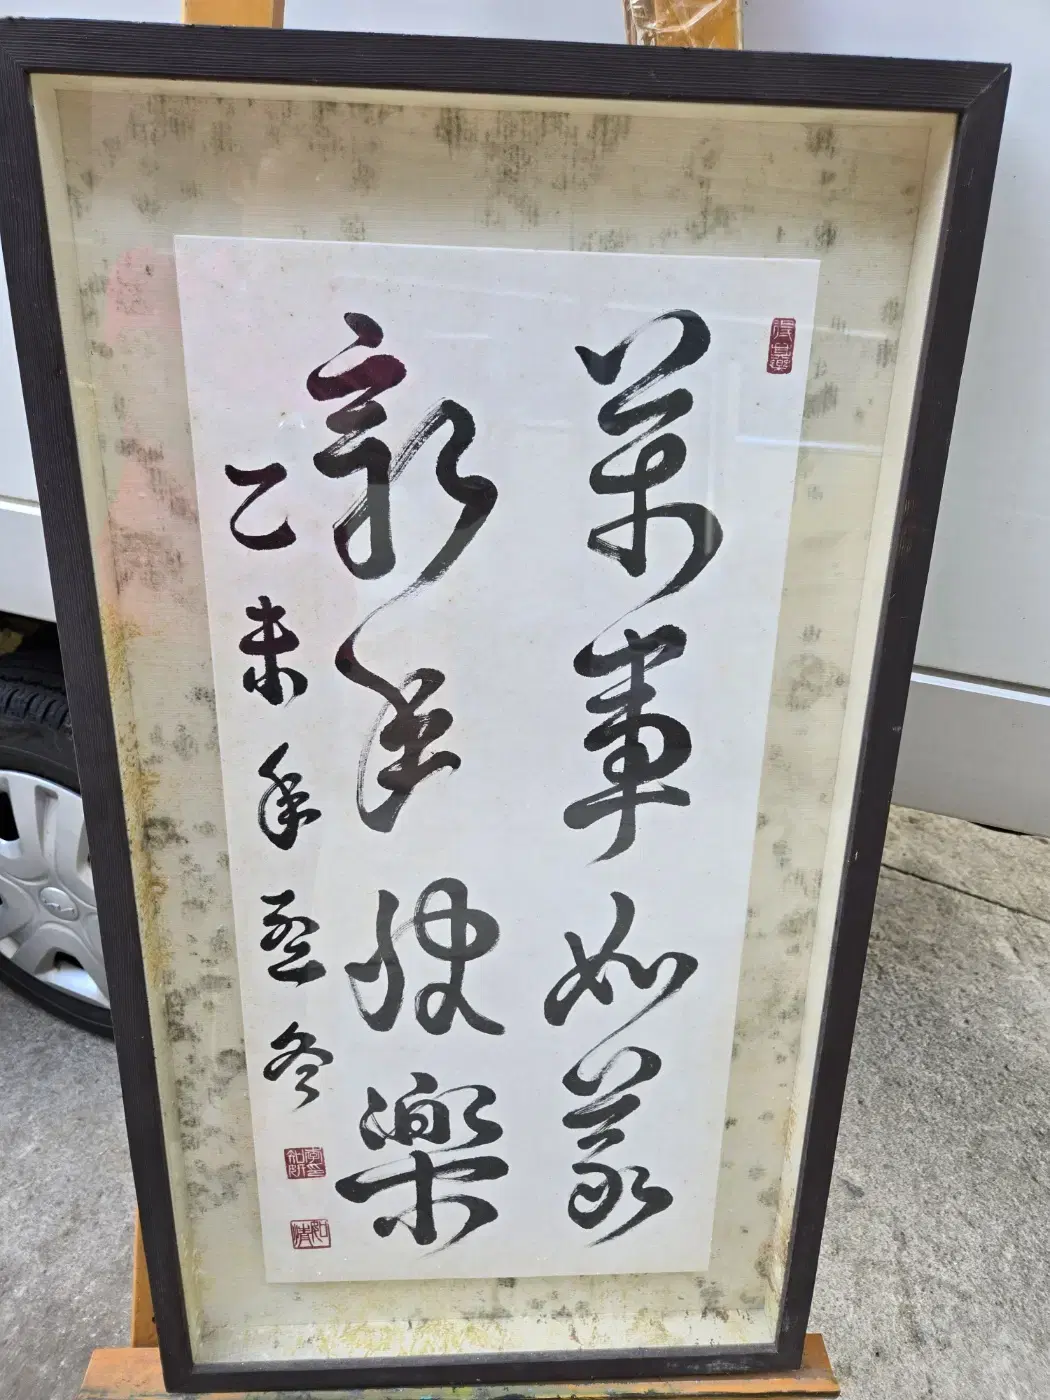 萬事如意
新年快樂
乙未年孟冬